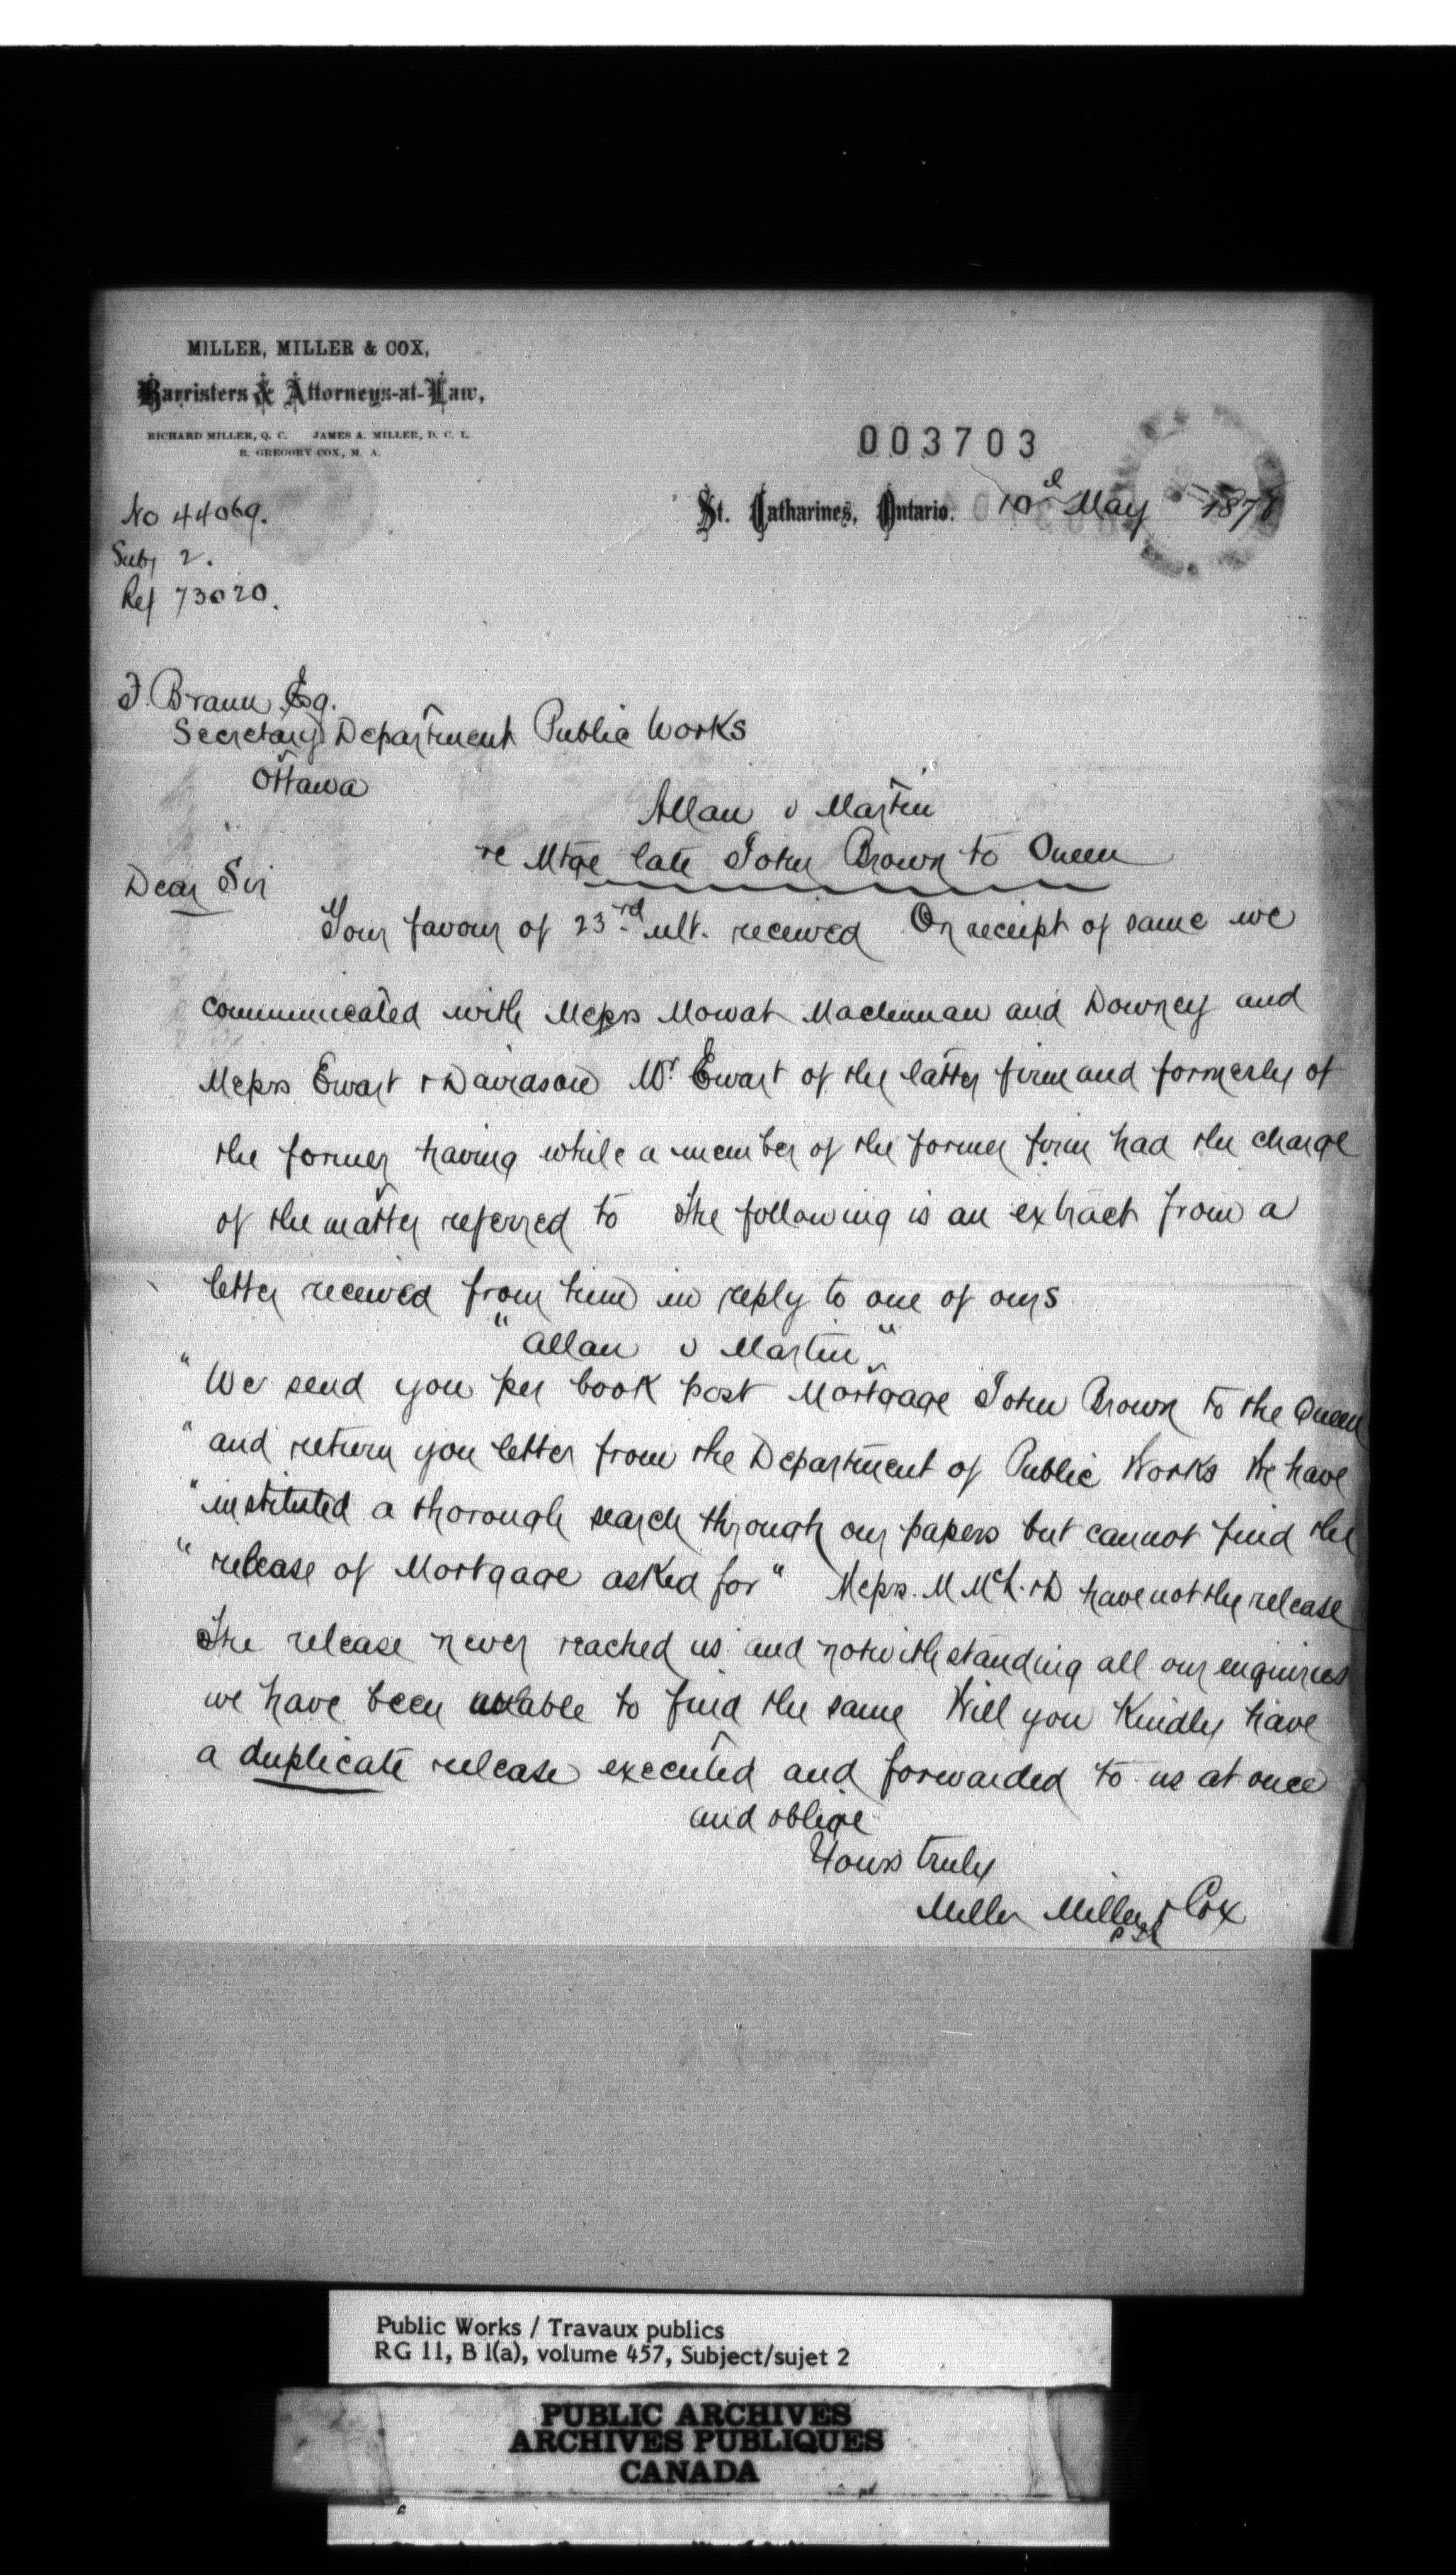 MILLER, MILLER & COX,
Barristers & Attorneys-at-Law,
RICHARD MILLER, Q. C. JAMES A. MILLER, D. C. L.
R. GREGORY COX, M. A.
003703
St. Catharines, Ontario. 10th May 1878
No 44069.
Subj 2.
Ref 73020.
F. Braun Esq.
Secretary Department Public Works
Ottawa
Allan v Martin
re Mtge late John Brown to Queen
Dear Sir
Your favour of 23rd ult. received On receipt of same we
communicated with Messrs Mowat Maclennan and Downey and
Messrs Ewart & Davidson Mr Ewart of the latter firm and formerly of
the former having while a member of the former firm had the charge
of the matter referred to The following is an extract from a
letter received from him in reply to one of ours
"Allan v Martin"
"We send you per book post Mortgage John Brown to the Queen
"and return you letter from the Department of Public Works We have
"instituted a thorough search through our papers but cannot find the
"release of Mortgage asked for" Messrs. M McL. & D have not the release
The release never reached us and notwithstanding all our enquiries
we have been unable to find the same Will you Kindly have
a duplicate release executed and forwarded to us at once
and oblige
Yours truly
Miller Miller & Cox
Public Works / Travaux publics
RG 11, B 1(a), volume 457, Subject/sujet 2
PUBLIC ARCHIVES
ARCHIVES PUBLIQUES
CANADA